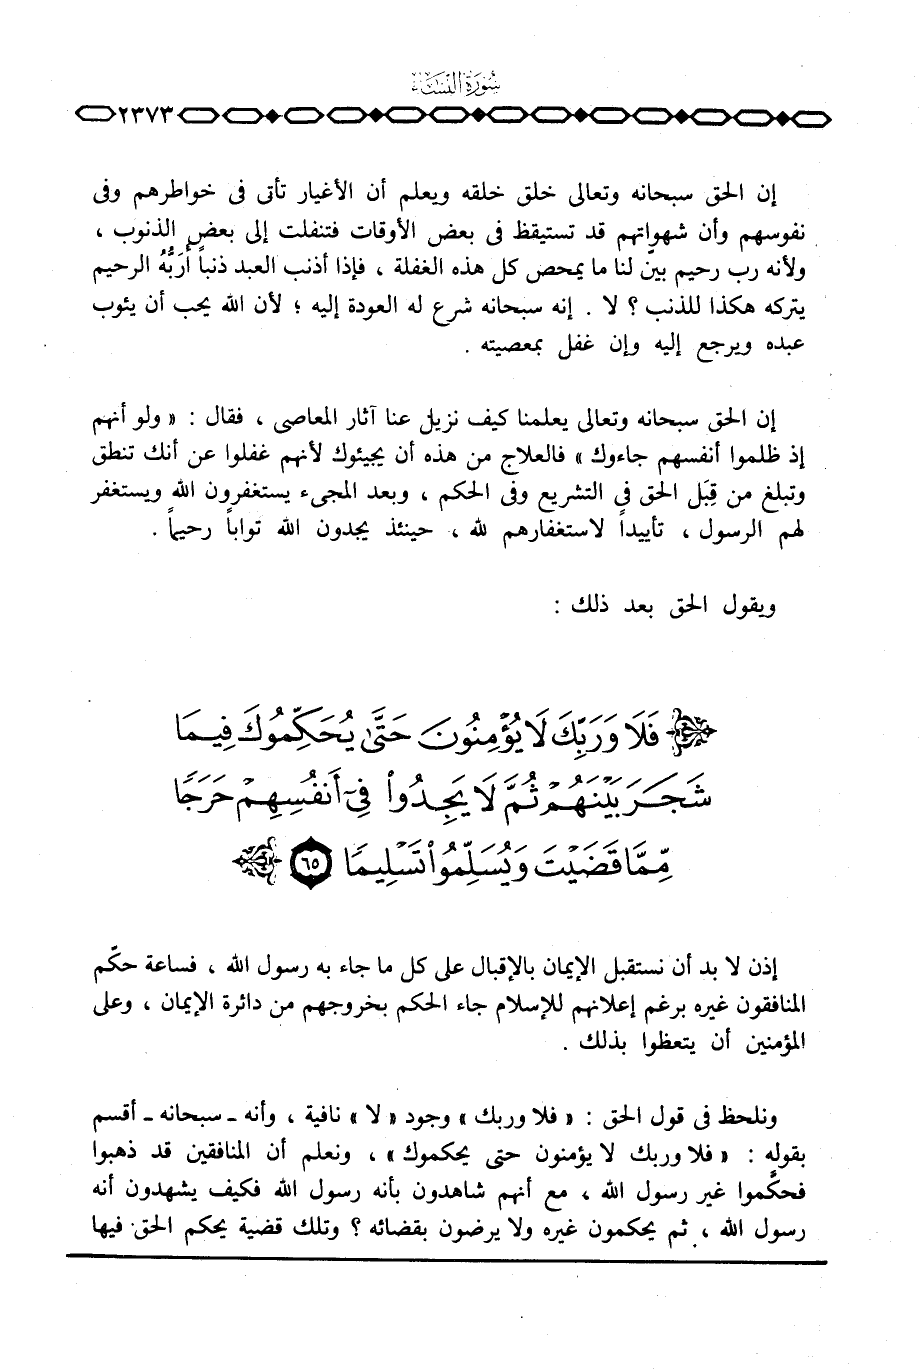 سُورَةُ النِّسَاءِ
٢٣٧٣
إن الحق سبحانه وتعالى خلق خلقه ويعلم أن الأغيار تأتى فى خواطرهم وفى
نفوسهم وأن شهواتهم قد تستيقظ فى بعض الأوقات فتنفلت إلى بعض الذنوب ،
ولأنه رب رحيم بيّن لنا ما يمحص كل هذه الغفلة ، فإذا أذنب العبد ذنباً أَرَبُّهُ الرحيم
يتركه هكذا للذنب ؟ لا . إنه سبحانه شرع له العودة إليه ؛ لأن الله يحب أن يئوب
عبده ويرجع إليه وإن غفل بمعصيته .
إن الحق سبحانه وتعالى يعلمنا كيف نزيل عنا آثار المعاصى ، فقال : « ولو أنهم
إذ ظلموا أنفسهم جاءوك » فالعلاج من هذه أن يجيئوك لأنهم غفلوا عن أنك تنطق
وتبلغ من قِبَل الحق فى التشريع وفى الحكم ، وبعد المجىء يستغفرون الله ويستغفر
لهم الرسول ، تأييداً لاستغفارهم لله ، حينئذ يجدون الله تواباً رحيماً .
ويقول الحق بعد ذلك :
فَلَا وَرَبِّكَ لَا يُؤْمِنُونَ حَتَّىٰ يُحَكِّمُوكَ فِيمَا
شَجَرَ بَيْنَهُمْ ثُمَّ لَا يَجِدُوا۟ فِىٓ أَنفُسِهِمْ حَرَجًا
مِّمَّا قَضَيْتَ وَيُسَلِّمُوا۟ تَسْلِيمًا ٦٥
إذن لا بد أن نستقبل الإيمان بالإقبال على كل ما جاء به رسول الله ، فساعة حكّم
المنافقون غيره برغم إعلانهم للإسلام جاء الحكم بخروجهم من دائرة الإيمان ، وعلى
المؤمنين أن يتعظوا بذلك .
ونلحظ فى قول الحق : « فلا وربك » وجود « لا » نافية ، وأنه ـ سبحانه ـ أقسم
بقوله : « فلا وربك لا يؤمنون حتى يحكموك » ، ونعلم أن المنافقين قد ذهبوا
فحكَّموا غير رسول الله ، مع أنهم شاهدون بأنه رسول الله فكيف يشهدون أنه
رسول الله ، ثم يحكمون غيره ولا يرضون بقضائه ؟ وتلك قضية يحكم الحق فيها